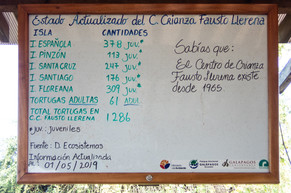 Estado Actualizado del C. Crianza Fausto Llerena
ISLA CANTIDADES
I. ESPAÑOLA 378 juv.*
I. PINZÓN 113 juv.*
I. SANTA CRUZ 247 juv.*
I. SANTIAGO 176 juv.*
I. FLOREANA 309 juv.*
TORTUGAS ADULTAS 61 ADUL
TOTAL TORTUGAS EN
C.C. FAUSTO LLERENA 1286
* juv: juveniles
Fuente: D. Ecosistemas
Información Actualizada
01/05/2019
Sabías que:
El Centro de Crianza
Fausto Llerena existe
desde 1965
GALÁPAGOS